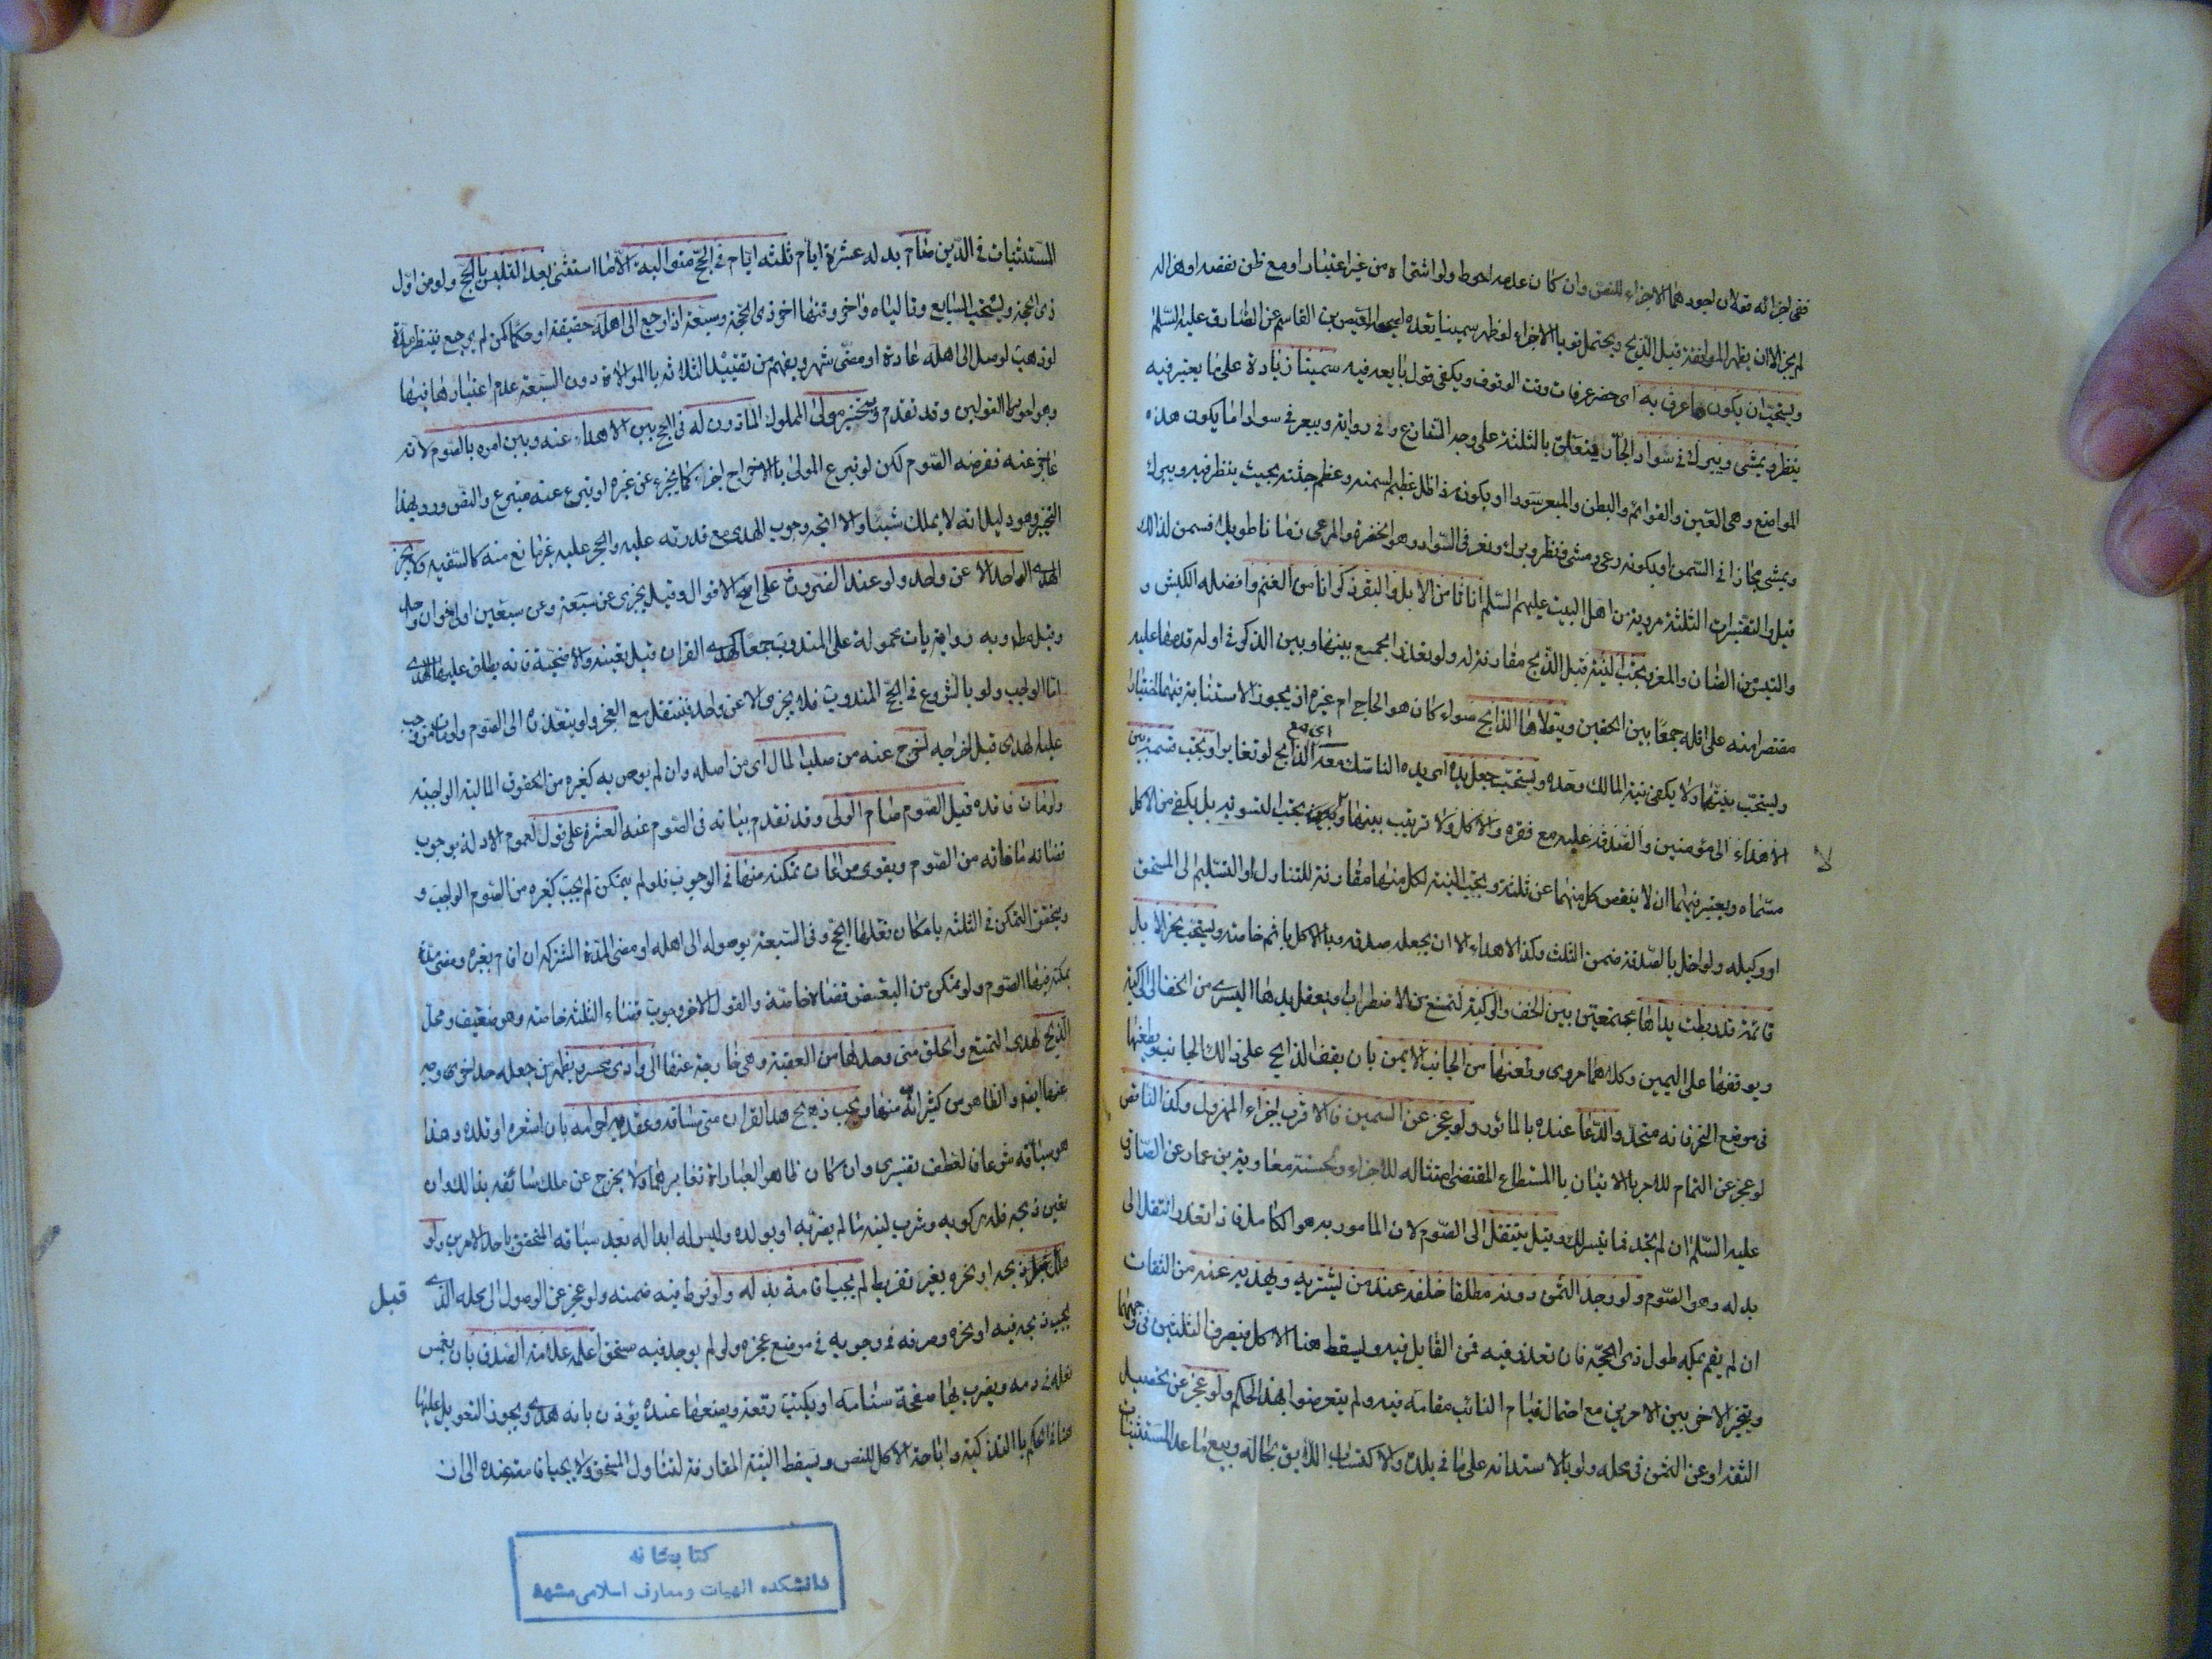 ففى اجزائه قولان اجودهما الاجزاء للنص وان كان عدمه احوط ولو اشتراه من غير اعتبار او مع ظن نقصه او هزاله
لم يجز الا ان يظهر الموافقة قبل الذبح ويحتمل قويا الاجزاء لو ظهر سمينا بعده لصحيح العيص بن القاسم عن الصادق عليه السلم
ويستحب ان يكون مما عرف به اى حضر عرفات وقت الوقوف ويكفى قول بايعه فيه سمينا زيادة على ما يعتبر فيه
ينظر ويمشى ويبرك فى سواد الجار يتعلق بالثلثة على وجه التنازع و فى رواية ويبعر فى سواد اما بكون هذه
المواضع وهى العين والقوائم والبطن والمبعر سودا او بكونه ذا ظل عظيم لسمنه وعظم جثته بحيث ينظر فيه ويبرك
ويمشى مجازا فى السمن او بكونه رعى ومشى ونظر وبرك وبعر فى السواد وهو الخضرة والمرعى زمانا طويلا فسمن لذلك
قيل والتفسيرات الثلثة مروية عن اهل البيت عليهم السلم اناثا من الابل والبقر ذكرانا من الغنم وافضله الكبش و
والتيس من الضان والمعز وتجب النية قبل الذبح مقارنة له ولو تعذر الجمع بينها وبين الذكر فى اوله قدمها عليه
مقتصرا منه على اقله جمعا بين الحقين ويتولاها الذابح سواء كان هو الحاج ام غيره اذ يجوز الاستنابة فيهما اختيارا
ويستحب نيتهما ولا يكفى نية المالك وحده ويستحب جعل يده اى يد الناسك معه اى مع الذابح لو تغايرا ويجب قسمته بين
الاهداء الى مؤمنين والصدقة عليه مع فقره والاكل ولا ترتيب بينها ولا يجب التسوية بل يكفى من الاكل
لا
مسماه ويعتبر فيهما ان لا ينقص كل منهما عن ثلثه وتجب النية لكل منها مقارنة للتناول او التسليم الى المستحق
او وكيله ولو اخل بالصدقة ضمن الثلث وكذا الاهداء الا ان يجعله صدقة وبالاكل ياثم خاصة ويستحب نحر الابل
قائمة قد ربطت يداها مجتمعتين بين الخف والركبة لتمنع من الاضطراب او يعقل يدها اليسرى من الخف الى الركبة
ويوقفها على اليمين وكلاهما مروى وطعنها من الجانب الايمن بان يقف الذابح على ذلك الجانب ويطعنها
فى موضع النحر فانه متحد والدعاء عنده بالماثور ولو عجز عن السمين فالاقرب اجزاء المهزول وكذا الناقص
لو عجز عن التمام للامر بالاتيان بالمستطاع المقتضى امتثاله للاجزاء ولحسنة معاوية بن عمار عن الصادق
عليه السلم ان لم تجد فما تيسر لك وقيل ينتقل الى الصوم لان المامور به هو الكامل فاذا تعذر انتقل الى
بدله وهو الصوم ولو وجد الثمن دونه مطلقا خلفه عند من يشتريه ويهديه عنه من الثقات
ان لم يقم بمكة طول ذى الحجة فان تعذر فيه فمن القابل فيه ويسقط هنا الاكل فيصرف الثلثين فى وجههما
ويتخير الاخر بين الامرين مع احتمال قيام النائب مقامه فيه ولم يتعرضوا لهذا الحكم ولو عجز عن تحصيل
الثقة او عن الثمن فى محله ولو بالاستدانة على ما فى بلده والاكتساب اللائق بحاله وبيع ما عدا المستثنيات
المستثنيات فى الدين صام بدله عشرة ايام ثلثة ايام فى الحج متوالية الا ما استثنى بعد التلبس بالحج ولو من اول
ذى الحجة ويستحب السابع وتالياه واخر وقتها اخر ذى الحجة وسبعة اذا رجع الى اهله حقيقة او حكما كمن لم يرجع فينتظر مدة
لو ذهب لوصل الى اهله عادة او مضى شهر ويفهم من تقييد الثلاثة بالموالاة دون السبعة عدم اعتبارها فيها
وهو اجود القولين وقد تقدم ويتخير مولى المملوك الماذون له فى الحج بين الاهداء عنه وبين امره بالصوم لانه
عاجز عنه ففرضه الصوم لكن لو تبرع المولى بالاخراج اجزاء كما يجزء عن غيره لو تبرع عنه متبرع والنص ورد بهذا
التخيير وهو دليل انه لا يملك شيئا والا اتجه وجوب الهدى مع قدرته عليه والحجر عليه غير مانع منه كالسفيه ولا يجزى
الهدى الواحد الا عن واحد ولو عند الضرورة على اصح الاقوال وقيل يجزى عن سبعة وعن سبعين اولى خوان واحد
وقيل مطلقا وبه روايات محمولة على المندوب جمعا كهدى القران قبل تعينه والاضحية فانه يطلق عليها الهدى
اما الواجب ولو بالشروع فى الحج المندوب فلا يجزى الا عن واحد فينتقل مع العجز ولو بتعذره الى الصوم ولو مات من وجب
عليه الهدى قبل اخراجه اخرج عنه من صلب المال اى من اصله وان لم يوص به كغيره من الحقوق المالية الواجبة
ولو مات فاقده قبل الصوم صام الولى وقد تقدم بيانه فى الصوم عنه العشرة على قول لعموم الادلة بوجوب
قضائه ما فاته من الصوم ويقوى مراعات تمكنه منها فى الوجوب فلو لم يتمكن لم يجب كغيره من الصوم الواجب و
ويتحقق التمكن فى الثلثة بامكان فعلها فى الحج وفى السبعة بوصوله الى اهله او مضى المدة المشترطة ان اقام بغيره ومضى مدة
يمكنه فيها الصوم ولو تمكن من البعض قضاه خاصة والقول الاخر وجوب قضاء الثلثة خاصة وهو ضعيف ومحل
الذبح لهدى التمتع والحلق منى وحدها من العقبة وهى خارجة عنها الى وادى محسر ويظهر من جعله حدا خروجه
عنها ايضا والظاهر من كثير انه منها ويجب ذبح هدى القران متى ساقه وعقد به احرامه بان اشعره او قلده وهذا
هو سياقه شرعا فالعطف تفسيرى وان كان ظاهر العبارة تغايرهما ولا يخرج عن ملك سائقه بذلك وان
تعين ذبحه فله ركوبه وشرب لبنه ما لم يضر به او بولده وليس له ابداله بعد سياقه المتحقق باحد الامرين ولو
هلك قبل ذبحه او نحره بغير تفريط لم يجب اقامة بدله ولو فرط فيه ضمنه ولو عجز عن الوصول الى محله الذى
قيل
يجب ذبحه فيه او نحره وصرفه فى وجوبه فى موضع عجزه ولو لم يوجد فيه مستحق اعلمه علامة الصدقة بان يغمس
نعله فى دمه ويضرب بها صفحة سنامه او يكتب رقعة ويضعها عنده يؤذن بانه هدى ويجوز التعويل عليها
هنا فى الحكم بالتذكية واباحة الاكل للنص وتسقط النية المقارنة لتناول المستحق ولا يجب اقامته عنده الى ان
كتابخانه
دانشكده الهيات ومعارف اسلامى مشهد